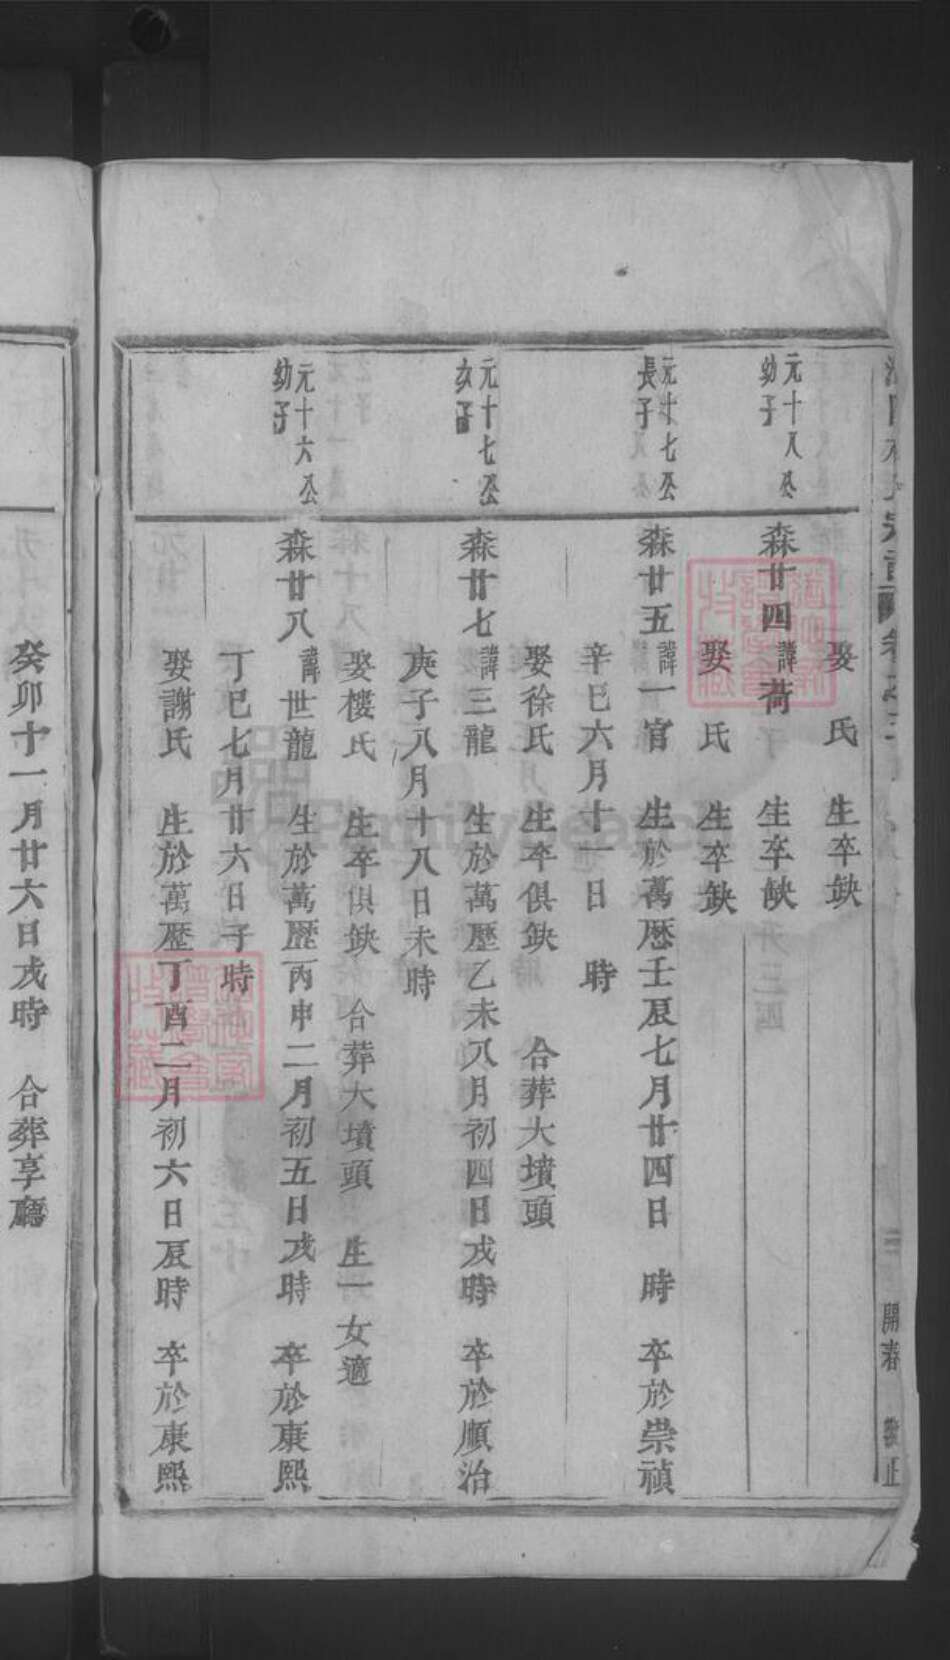 娶 氏 生卒缺
元十八公
幼子
森廿四 諱荷 生卒缺
娶 氏 生卒缺
元十七公
長子
森廿五 諱一官 生於萬歷壬辰七月廿四日 時 卒於崇禎
辛巳六月十一日 時
娶徐氏 生卒俱缺 合葬大墳頭
元十七公
森廿七 諱三龍 生於萬歷乙未八月初四日戌時 卒於順治
庚子八月十八日未時
娶樓氏 生卒俱缺 合葬大墳頭 生一女適
元十六公
幼子
森廿八 諱世龍 生於萬歷丙申二月初五日戌時 卒於康熙
丁巳七月廿六日子時
娶謝氏 生於萬歷丁酉二月初六日辰時 卒於康熙
癸卯十一月廿六日戌時 合葬享廳
FamilySearch